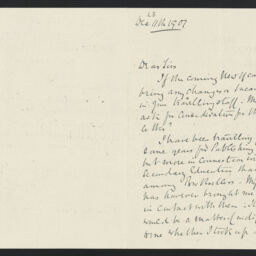 Dec 11th 1907
Dear Sirs
If the coming New Year
bring any changes or vacan
in your travelling staff -
ask for consideration for th
to this?
I have been travelling f
some years for Publishing
but more in connection wi
Secondary Education tha
among Booksellers - My
has however brought me
in contact with them. It
would be a matter of indif
to me whether I took up